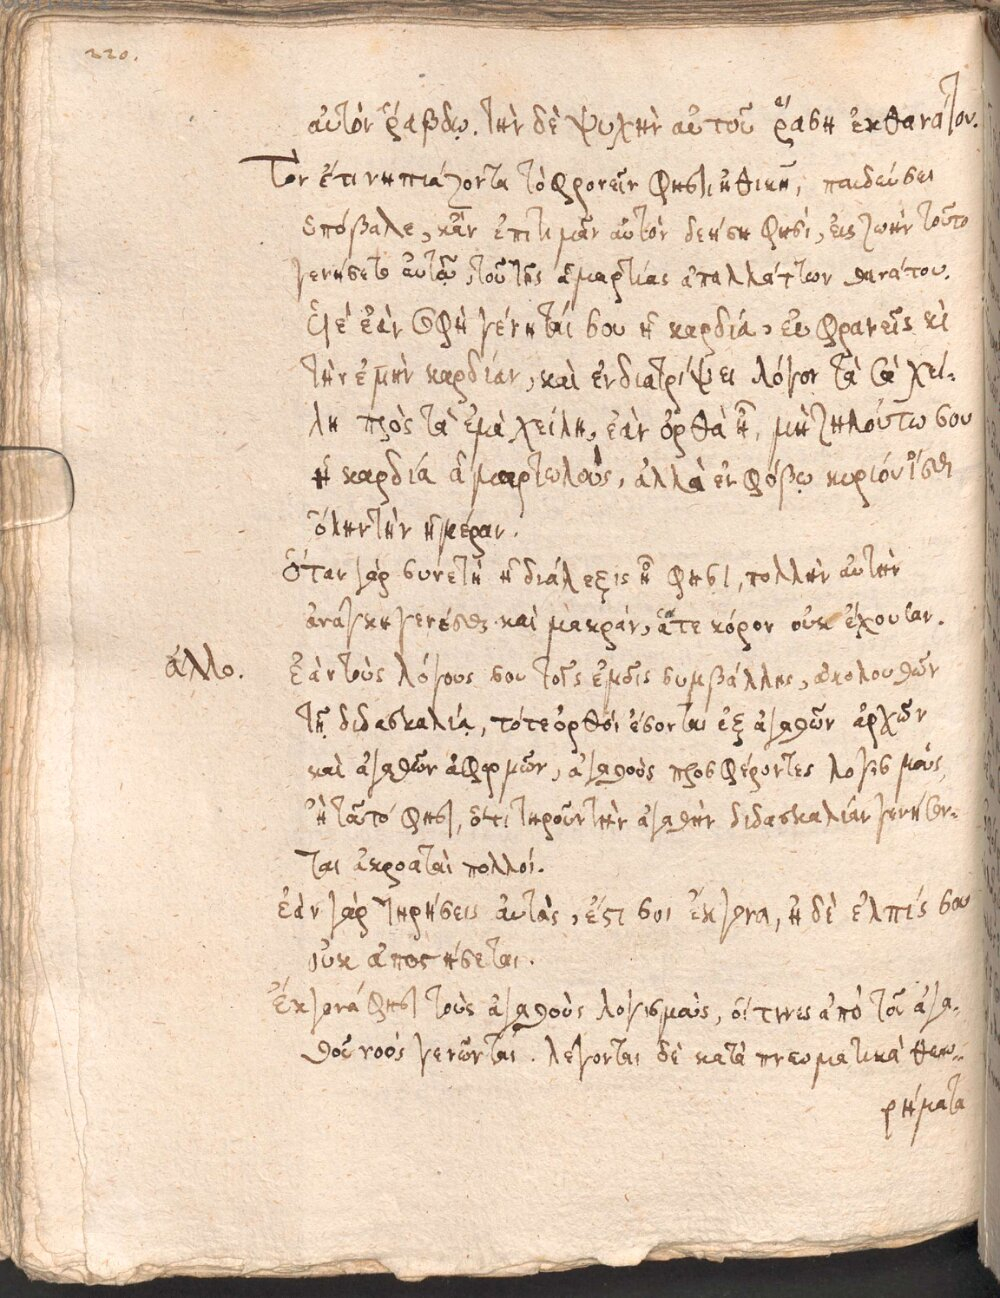 220.
αὐτὸν ῥάβδῳ. τὴν δὲ ψυχὴν αὐτοῦ ῥάσῃ ἐκ θανάτου.
Τὸν ἔτι νηπιάζοντα τὸ φρονεῖν φησὶ ἠθικῇ, παιδεύσει
ὑπόβαλε, κἂν ἐπιτιμᾶν αὐτὸν δεήσῃ φησί, εἰς ζωὴν τοῦτο
γενήσεται αὐτῷ, τοῦ τῆς ἁμαρτίας ἀπαλλάττων θανάτου.
Υἱὲ ἐὰν σοφὴ γένηταί σου ἡ καρδία, εὐφρανεῖς κὶ
τὴν ἐμὴν καρδίαν, καὶ ἐνδιατρίψει λόγον τὰ σὰ χεί-
λη πρὸς τὰ ἐμὰ χείλη, ἐὰν ὀρθὰ ᾖ, μὴ ζηλούτω σου
ἡ καρδία ἁμαρτωλοὺς, ἀλλὰ ἐν φόβῳ κυρίου ἴσθι
ὅλην τὴν ἡμέραν.
Ὅταν γὰρ συνετὴ ἡ διάλεξις ᾖ φησὶ, πολλὴν αὐτὴν
ἀνάγκη γενέσθαι καὶ μακρὰν, ἅτε κόρον οὐκ ἔχουσαν.
ἄλλο. Ἐὰν τοὺς λόγους σου τοῖς ἐμοῖς συμβάλλῃς, ἀκολουθῶν
τῇ διδασκαλίᾳ, τότε ὀρθοὶ ἔσονται ἐξ ἀγαθῶν ἀρχῶν
καὶ ἀγαθῶν ἀφορμῶν, ἀγαθοὺς προσφέροντες λογισμούς,
ἢ ταὐτό φησὶ, ὅτι τηροῦν τὴν ἀγαθὴν διδασκαλίαν γενήσον-
ται ἀκροαταὶ πολλοί.
ἐὰν γὰρ τηρήσεις αὐτὰς, ἔςι σοι ἔκγονα, ἡ δὲ ἐλπίς σου
οὐκ ἀποςήσεται.
Ἔκγονά φησὶ τοὺς ἀγαθοὺς λογισμοὺς, οἵτινες ἀπὸ τοῦ ἀγα-
θοῦ νοὸς γενῶνται. λέγονται δὲ κατὰ πνευματικὰ θεω-
ρήματα